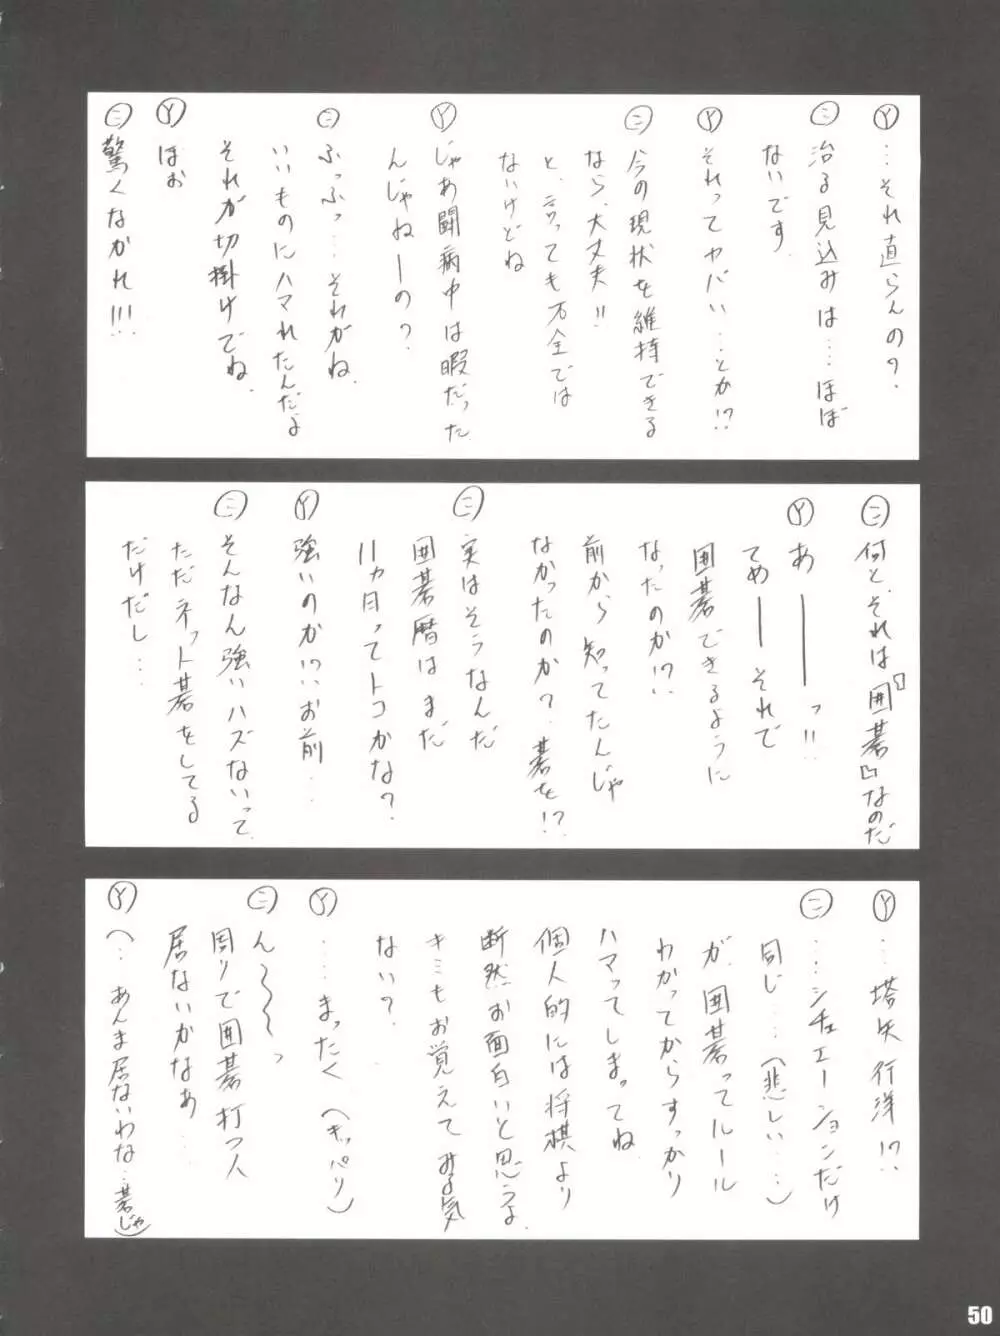 Ⓨ …それ直らんの?
㊁ 治る見込みは…ほぼ
ないです.
Ⓨ それってヤバい…とか!?
㊁ 今の現状を維持できる
なら、大丈夫!!
と、言っても万全では
ないけどね
Ⓨ じゃあ闘病中は暇だった
んじゃねーの?
㊁ ふっふっ…それがね.
いいものにハマれたんだよ
それが切掛けでね.
Ⓨ ほぉ
㊁ 驚くなかれ!!!
㊁ 何と、それは『囲碁』なのだ
Ⓨ あーーっ!!
てめーーそれで
囲碁できるように
なったのか!?
前から知ってたんじゃ
なかったのか?碁を!?
㊁ 実はそうなんだ
囲碁暦はまだ
11ヵ月ってトコかな?
Ⓨ 強いのか!?お前…
㊁ そんなん強いハズないって.
ただネット碁をしてる
だけだし…
Ⓨ …塔矢行洋!?
㊁ ……シチュエーションだけ
同じ……(悲しい…)
が、囲碁ってルール
わかってからすっかり
ハマってしまってね.
個人的には将棋より
断然お面白いと思うよ.
キミもお覚えてみる気
ない?
Ⓨ ……まったく(キッパリ)
㊁ ん〜〜〜っ
周りで囲碁打つ人
居ないかなぁ…
Ⓨ (…あんま居ないわな…碁じゃ)
50